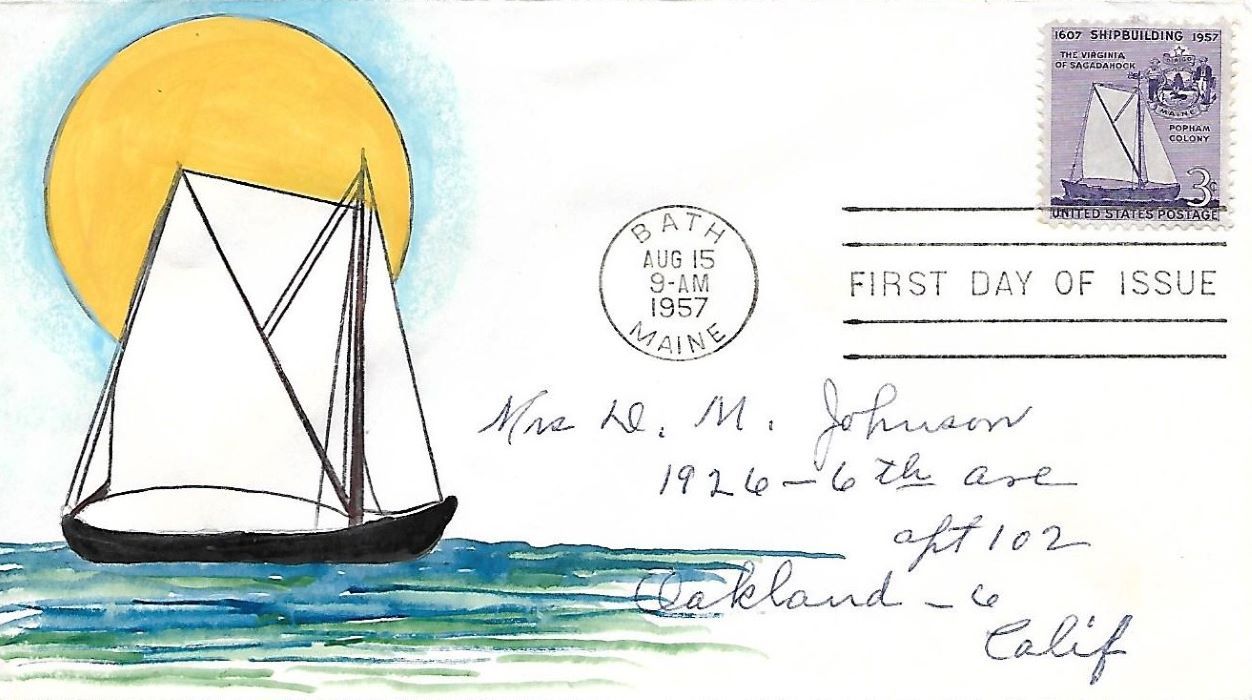 1607 SHIPBUILDING 1957
THE VIRGINIA
OF SAGADAHOCK
DIRIGO
MAINE
POPHAM
COLONY
3¢
UNITED STATES POSTAGE
BATH
AUG 15
9-AM
1957
MAINE
FIRST DAY OF ISSUE
Mrs D. M. Johnson
1926-6th ave
apt 102
Oakland - 6
Calif